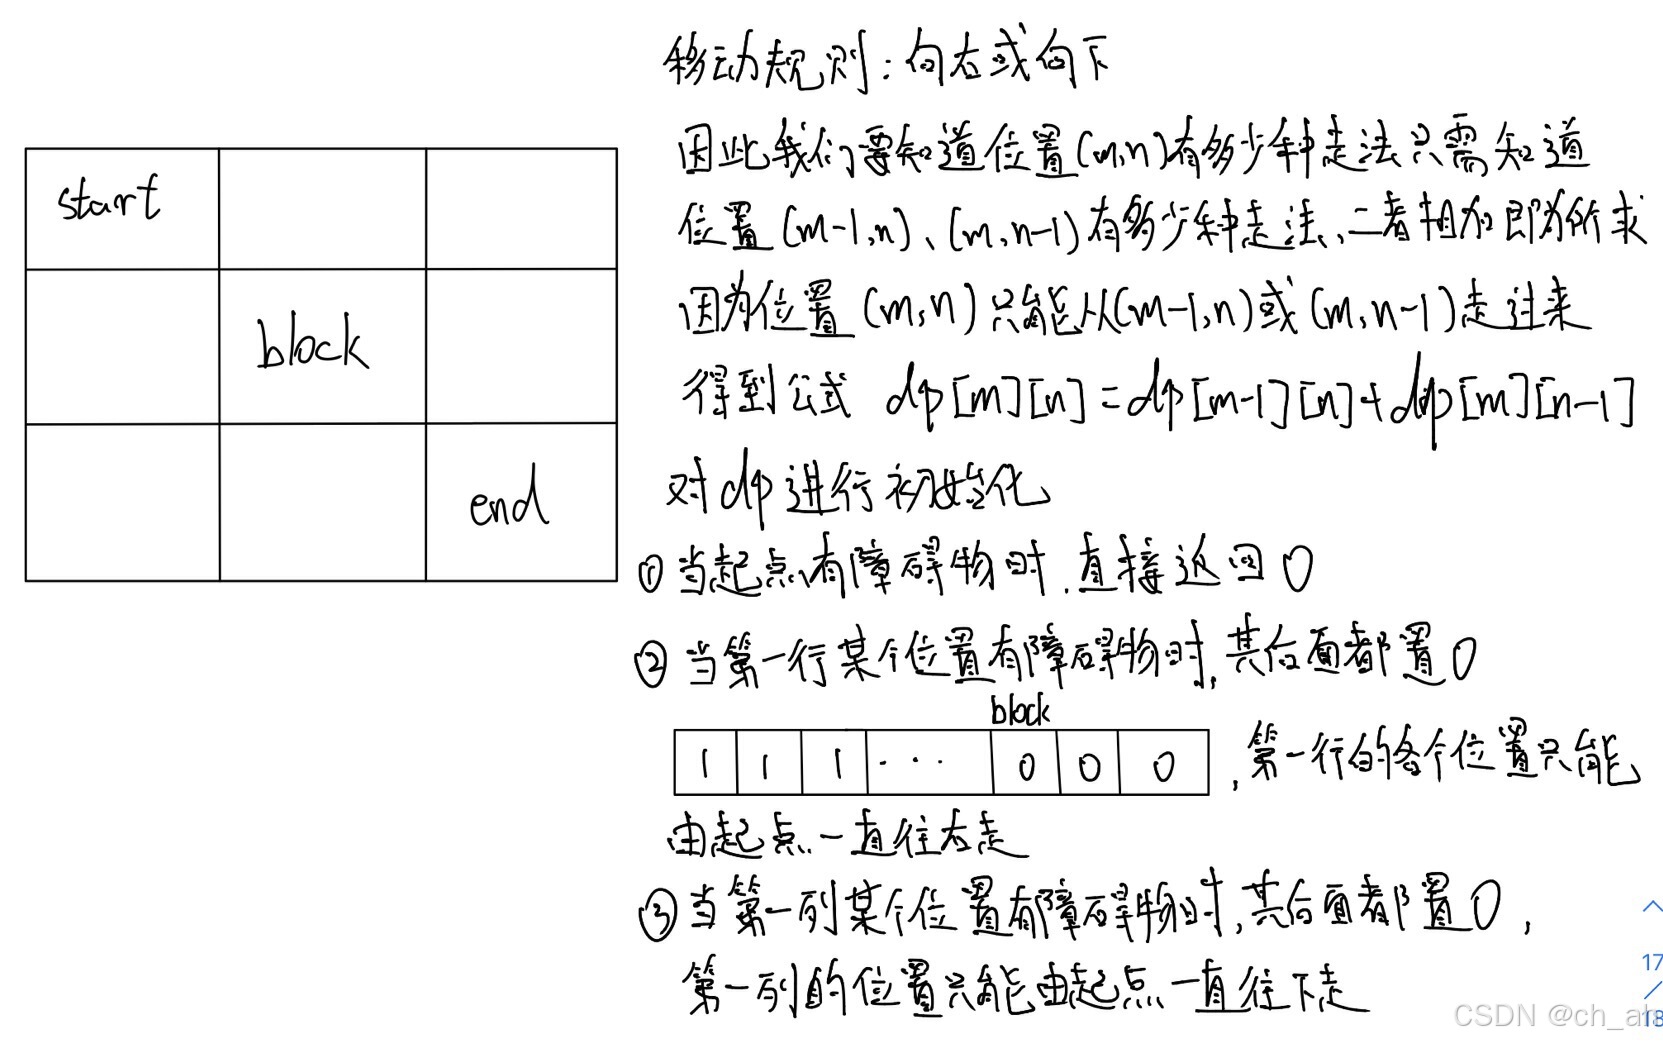 移动规则:向右或向下
因此我们要知道位置(m,n)有多少种走法只需知道
start
位置(m-1,n)、(m,n-1)有多少种走法,二者相加即为所求
因为位置(m,n)只能从(m-1,n)或(m,n-1)走过来
block
得到公式 dp[m][n]=dp[m-1][n]+dp[m][n-1]
对dp进行初始化
end
①当起点有障碍物时,直接返回0
②当第一行某个位置有障碍物时,其后面都置0
block
1 1 1 ··· 0 0 0 ,第一行的各个位置只能
由起点一直往右走
③当第一列某个位置有障碍物时,其后面都置0,
第一列的位置只能由起点一直往下走
17
/
18
CSDN @ch_ah